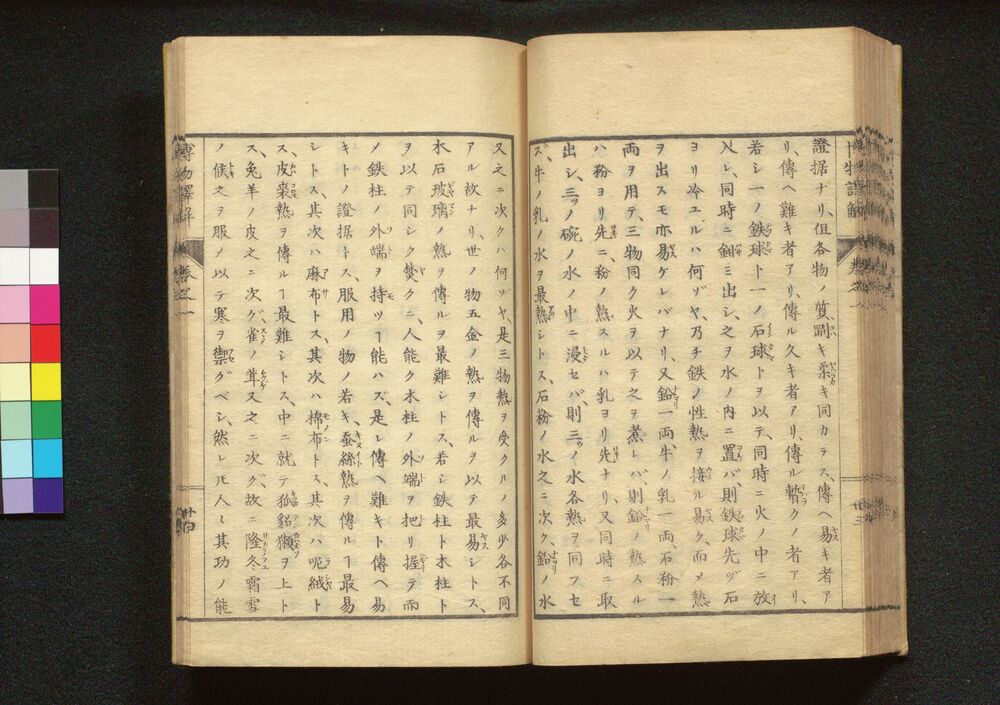 證据ナリ、伹各物ノ質剛キ柔キ同カラス、傳ヘ易キ者ア
リ、傳ヘ難キ者アリ、傳ル久キ者アリ、傳ル暫クノ者アリ、
若シ一ノ鉄球ト一ノ石球トヲ以テ、同時ニ火ノ中ニ放
入レ、同時ニ鉗ミ出シ、之ヲ水ノ内ニ置バ、則鉄球先ヅ石
ヨリ冷ユルハ何ゾヤ、乃チ鉄ノ性熱ヲ接ル易ク、而メ熱
ヲ出スモ亦易ケレバナリ、又鉛一両、牛ノ乳一両、石粉一
両ヲ用テ、三物同ク火ヲ以テ之ヲ煮レバ、則鉛ノ熱スル
ハ粉ヨリ先ニ、粉ノ熱スルハ乳ヨリ先ナリ、又同時ニ取
出シ、三ノ碗ノ水ノ中ニ浸セバ、則三ノ水各熱ヲ同フセ
ズ、牛ノ乳ノ水ヲ最熱シトス、石粉ノ水之ニ次ク、鉛ノ水
又之ニ次クハ何ゾヤ、是三物熱ヲ受クルノ多少各不同
アル故ナリ、世ノ物五金ノ熱ヲ傳ルヲ以テ最易シトス、
木石玻璃ノ熱ヲ傳ルヲ最難シトス、若シ鉄柱ト木柱ト
ヲ以テ同シク焚クニ、人能ク木柱ノ外端ヲ把リ握テ而
メ鉄柱ノ外端ヲ持ツヿ能ハズ、是レ傳ヘ難キト傳ヘ易
キトノ證据トス、服用ノ物ノ若キ、蚕絲熱ヲ傳ルヿ最易
シトス、其次ハ麻布トス、其次ハ棉布トス、其次ハ呢絨ト
ス、皮裘熱ヲ傳ルヿ最難シトス、中ニ就テ狐貂獺ヲ上ト
ス、兔羊ノ皮之ニ次グ、雀ノ茸又之ニ次ク、故ニ隆冬霜雪
ノ候之ヲ服メ以テ寒ヲ禦グベシ、然レ𪜈人々其功ノ能
博物譯解 巻之一
廿四